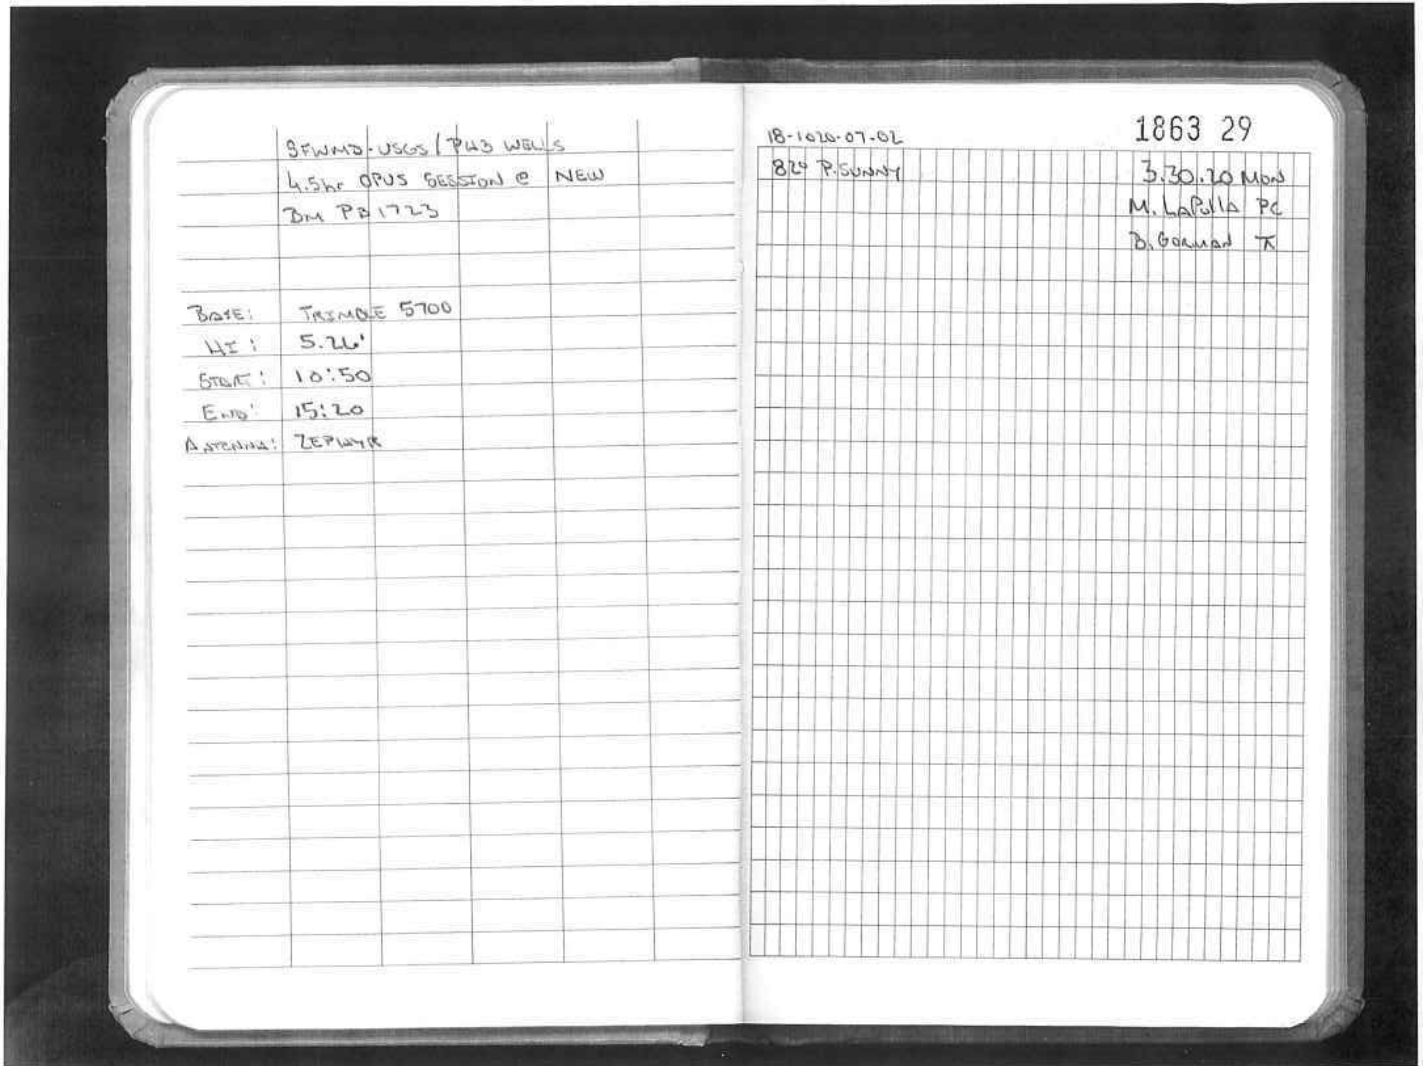 SFWMD-USGS / PH3 WELLS
4.5hr OPUS SESSION @ NEW
BM PB1723
BASE: TRIMBLE 5700
HI: 5.26'
START: 10:50
END: 15:20
ANTENNA: ZEPHYR
1863 29
18-1020-07-02
82° P.SUNNY 3.30.20 MON
M. LaPulla PC
B. GORMAN